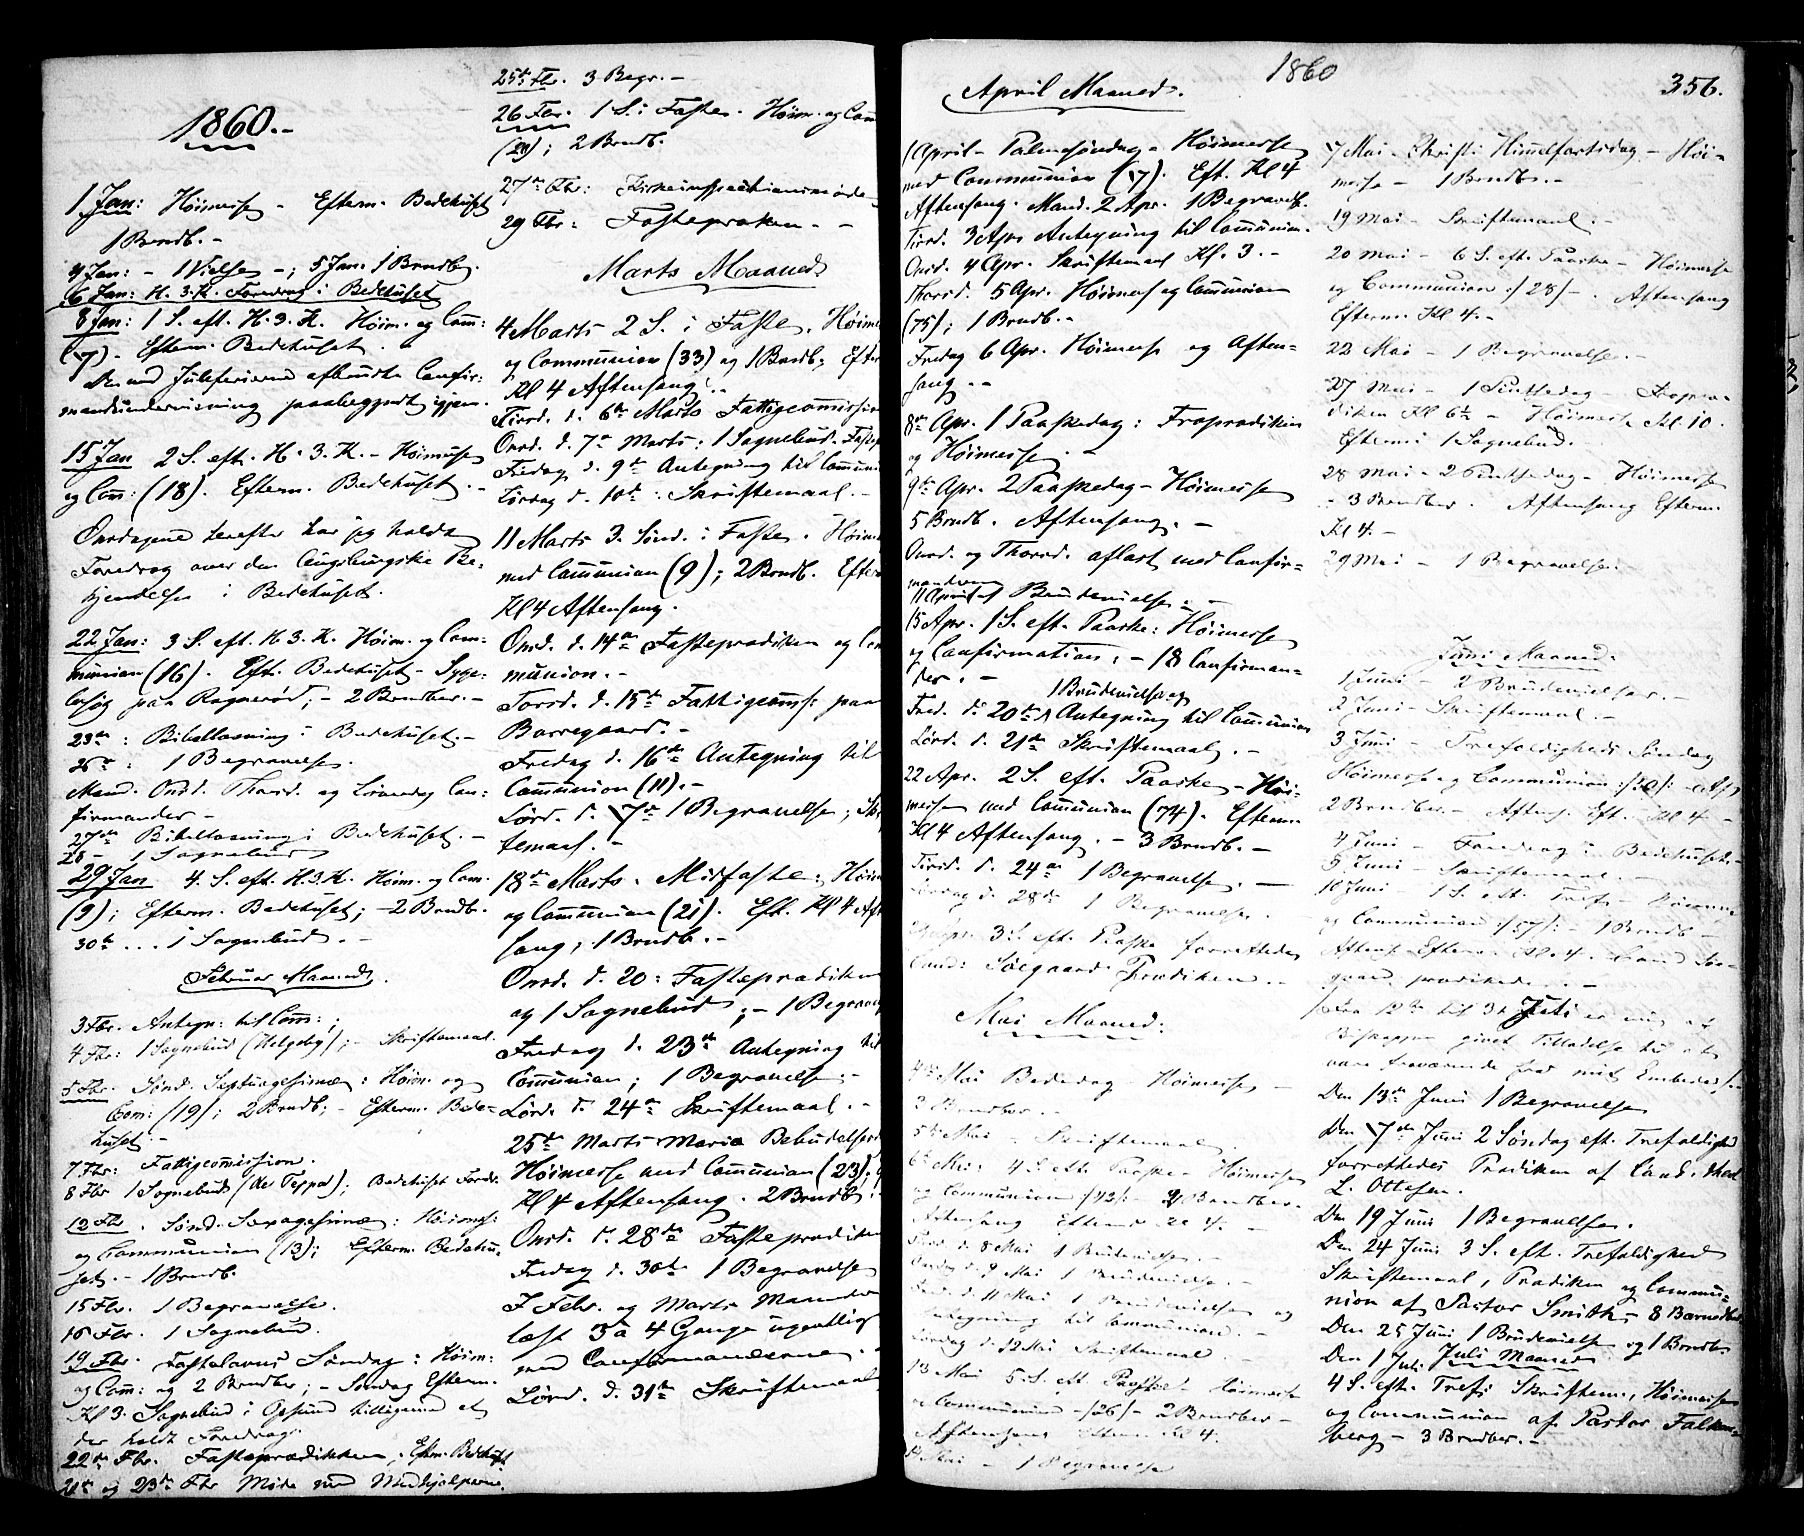 1860.-
1 Jan: Høimesse - Efterm. Bedehuset
1 Brndb. -
4 Jan: - 1 Vielse -; 5 Jan: 1 Brndb.
6 Jan: H. 3. K. Foredrag i Bedehuset
8 Jan: 1 S. eft. H. 3. K. Høim. og Com:
(7). Efterm. Bedehuset.
Den ved Juleferierne afbrudte Confir:
mandundervisning paabegyndt igjen.
15 Jan 2 S. eft. H. 3. K. - Høimesse
og Com: (18). Efterm. Bedehuset. -
Onsdagene herefter har jeg holdt
Foredrag over den Augsburgske Be-
kjendelse i Bedehuset.
22 Jan: 3 S. eft. H. 3. K. Høim. og Com-
munion (16). Eft. Bedehuset - Syge-
besøg paa Rognerød; - 2 Brndber. -
23de: Bibellæsning i Bedehuset. -
1 Begravelse.
Mand. Onsd. Thorsd. og Løverdag Con:
firmander -
27de Bibellæsning i Bedehuset. -
28 - 1 Sognebud
29 Jan 4. S. eft. H. 3. K. Høim. og Com.
(9); Efterm. Bedehuset; - 2 Brndb.
30te ... 1 Sognebud. -
Februar Maaned.
3 Fbr. Antegn: til Com: ;
4 Fbr: 1 Sognebud (Helgeby); - Skriftemaal.
5 Fbr. Sønd. Septuagesimæ: Høim. og
Com: (19); 2 Brndb; - Efterm. Bede-
huset. -
7 Fbr: Fattigcommission.
8 Fbr 1 Sognebud; Bedehuset Fordr.
12 Fbr. Sønd. Sexagesimæ: Høimes:
og Communion (13); Efterm. Bedehu-
set. - 1 Brndb.
15 Fbr. 1 Begravelse.
16 Fbr. 1 Sognebud.
19 Fbr. Fastelavns Søndag: Høim:
og Com: og 2 Brndber; - Søndag Efterm.
Kl 3. Sognebud i Gesund tilligemed et
der holdt Foredrag.
22de Fbr. Fasteprædikken. Efterm. Bedehuset
21de og 23de Fbr Møde med Medhjelperne.
25de Fbr. 3 Begr. -
26 Fbr. 1 S. i Faste. Høim. og Com
(21); 2 Brndb.
27de Fbr: Kirkeinspectionsmøde -
29 Fbr: Fastepræken. -
Marts Maaned
4 Marts 2 S. i Faste. Høime
og Communion (33) og 1 Barndb; Efter
Kl 4 Aftensang. -
Tirsd. d. 6te Marts Fattigcommission
Onsd. d. 7de Marts: 1 Sognebud. Fastep
Fredag d. 9de Antegning til Commun
Lördag d. 10de: Skriftemaal. -
11 Marts 3. Sønd. i Faste. Høime
med Communion (9); 2 Brndb. Efter
Kl 4 Aftensang.
Onsd. d. 14de Fasteprædiken og Com
munion. -
Torsd. d. 15de Fattigcomms: paa
Borregaard. -
Fredag d. 16de Antegning til
Communion (11). -
Lörd. d. 17de 1 Begravelse; Skrif
temaal. -
18de Marts. Midfaste: Høim
og Communion (21). Eft. Kl 4 Aft
sang; 1 Brndb. -
Onsd. d. 20: Fasteprædiken
og 1 Sognebud; - 1 Begravelse
Fredag d. 23de Antegning til
Communion; 1 Begravelse -
Lörd. d. 24de Skriftemaal. -
25de Marts Mariæ Bebudelsesd
Höimesse med Communion (23);
Kl 4 Aftensang. 2 Brndb; -
Onsd. d. 28de Fasteprædiken
Fredag d. 30te 1 Begravelse
I Febr. og Marts Maaneder
læst 3 à 4 Gange ugentlig
med Confirmanderne.
Lörd. d. 31te Skriftemaal
1860
356.
April Maaned.
1 April - Palmesöndag - Höimesse
med Communion (17). Eft. Kl 4
Aftensang. Mand. 2 Apr. 1 Begravels.
Tirsd. 3 Apr Antegning til Communion.
Onsd. 4 Apr. Skriftemaal Kl. 3. -
Thorsd. 5 Apr. Höimes og Communion
(75); 1 Brndb. -
Fredag 6 Apr. Höimesse og Aften-
sang. -
8de Apr. 1 Paaskedag: Froprædiken
og Höimesse. -
9de Apr. 2 Paaskedag - Höimesse
5 Brndb. Aftensang. -
Onsd. og Thorsd. aflæst med Confir-
manderne
11 April 1 Brudevielse. -
15 Apr. 1 S. eft. Paaske: Höimesse
og Confirmation. - 18 Confirman-
der. -
1 Brudevielse og
Fred. d. 20de Antegning til Communion
Lörd. d. 21de Skriftemaal. -
22 Apr. 2 S. eft. Paaske - Höi-
messe med Communion (74). Efterm.
Kl 4 Aftensang. - 3 Brndb. -
Tirsd. d. 24de 1 Begravelse. -
Lördag d. 28de 1 Begravelse.
3 S. eft. Paaske forrettedes
Cand: Sölgaard Prædiken. -
Mai Maaned:
4de Mai Bededag - Höimesse -
3 Brndber. -
5de Mai - Skriftemaal
6te Mai: 4 S. eft. Paaske - Höimesse
og Communion /:42:/ - 2 Brndber.
Aftensang Efterm Kl 4. -
Tirsd. d. 8 Mai 1 Brudevielse. -
Onsdag d. 9 Mai 1 Brudevielse. -
Fred. d. 11 Mai 1 Brudevielse og
Antegning til Communion. -
Lördag d. 12 Mai Skriftemaal. -
13 Mai 5. S. eft. Paaske - Höimesse
og Communion -/26/- 2 Brndber -
Aftensang Efterm Kl 4.
Mai - 1 Begravelse
17 Mai - Christi Himmelfartsdag - Höi-
messe - 1 Brndb. -
19 Mai - Skriftemaal. -
20 Mai - 6 S. eft. Paaske - Höimesse
og Communion /28/-. Aftensang
Efterm. Kl 4. -
22 Mai - 1 Begravelse. -
27 Mai - 1 Pintsedag - Fropræ-
diken Kl 6½ - Höimesse Kl. 10.
Efterm: 1 Sognebud. -
28 Mai - 2 Pintsedag - Höimesse
- 3 Brndber. Aftensang Efterm.
Kl 4. -
29 Mai - 1 Begravelse.
Juni Maaned:
1 Juni - 2 Brudevielser. -
2 Juni - Skriftemaal. -
3 Juni - Trefoldigheds Söndag
Höimesse og Communion
2 Brndber - Aftens. Eft. Kl 4. -
4 Juni - Foredrag i Bedehuset. -
9 Juni - Skriftemaal. -
10 Juni - 1 S. eft. Tref. - Höimesse
og Communion /:57/: - 1 Brndb -
Aftens. Efterm. Kl. 4. Cand Söl-
gaard prædikede. -
Fra 12te til 31 Juli er mig af
Biskoppen givet Tilladelse til at
være fraværende fra mit Embede.
Den 13de Juni 1 Begravelse
Den 17de Juni 2 Söndag eft. Trefoldighed
forrettedes Prædiken af Cand. theol
L. Ottesen.
Den 19 Juni 1 Begravelse.
Den 24 Juni 3 S. eft. Trefoldighed
Skriftemaal, Prædiken og Commu-
nion af Pastor Smith - 8 Barnedaab
Den 25 Juni 1 Brudevielse og 1 Brndb
Juli Maaned
Den 1 Juli
4 S. eft. Tref: Skriftem., Höimesse
og Communion af Pastor Falken-
berg - 3 Brndber. -